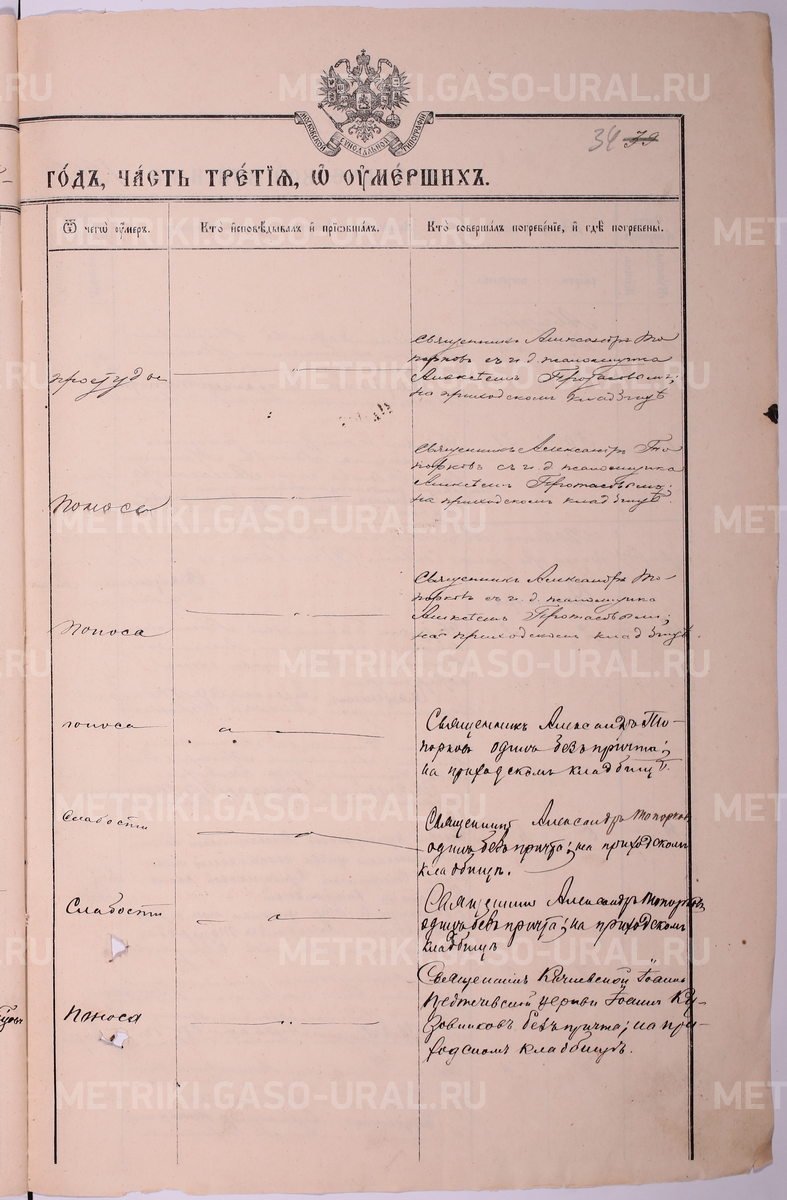 METRIKI.GASO-URAL.RU
МОСКОВСКОЙ СѴНОДАЛЬНОЙ ТИПОГРАФІИ
34 39
ГО́ДЪ, ЧА́СТЬ ТРЕ́ТІЯ, Ѡ ОУ҆МЕ́РШИХЪ.
Ѿ чегѡ̀ оу҆́меръ.
Кто̀ и҆сповѣ́дывалъ и҆ прїѻбща́лъ.
Кто̀ соверша́лъ погребе́нїе, и҆ гдѣ̀ погребены̀.
простуды
Священникъ Александръ То
порковъ съ и. д. псаломщика
Алексѣемъ Протасовымъ;
на приходскомъ кладбищѣ
Поноса
Священникъ Александръ То
порковъ съ и. д. псаломщика
Алексѣемъ Протасовымъ;
на приходскомъ кладбищѣ.
Поноса
Священникъ Александръ То-
порковъ съ и. д. псаломщика
Алексѣемъ Протасовымъ;
на приходскомъ кладбищѣ.
поноса
Священникъ Александръ То-
порковъ одинъ безъ причта;
на приходскомъ кладбищѣ.
Слабости
Священникъ Александръ Топорковъ
одинъ безъ причта; на приходскомъ
кладбищѣ.
Слабости
Священникъ Александръ Топорковъ
одинъ безъ причта; на приходскомъ
кладбищѣ
Поноса
Священникъ Іоанно
Предтечевской церкви Іоаннъ
безъ причта; на при-
ходскомъ кладбищѣ.